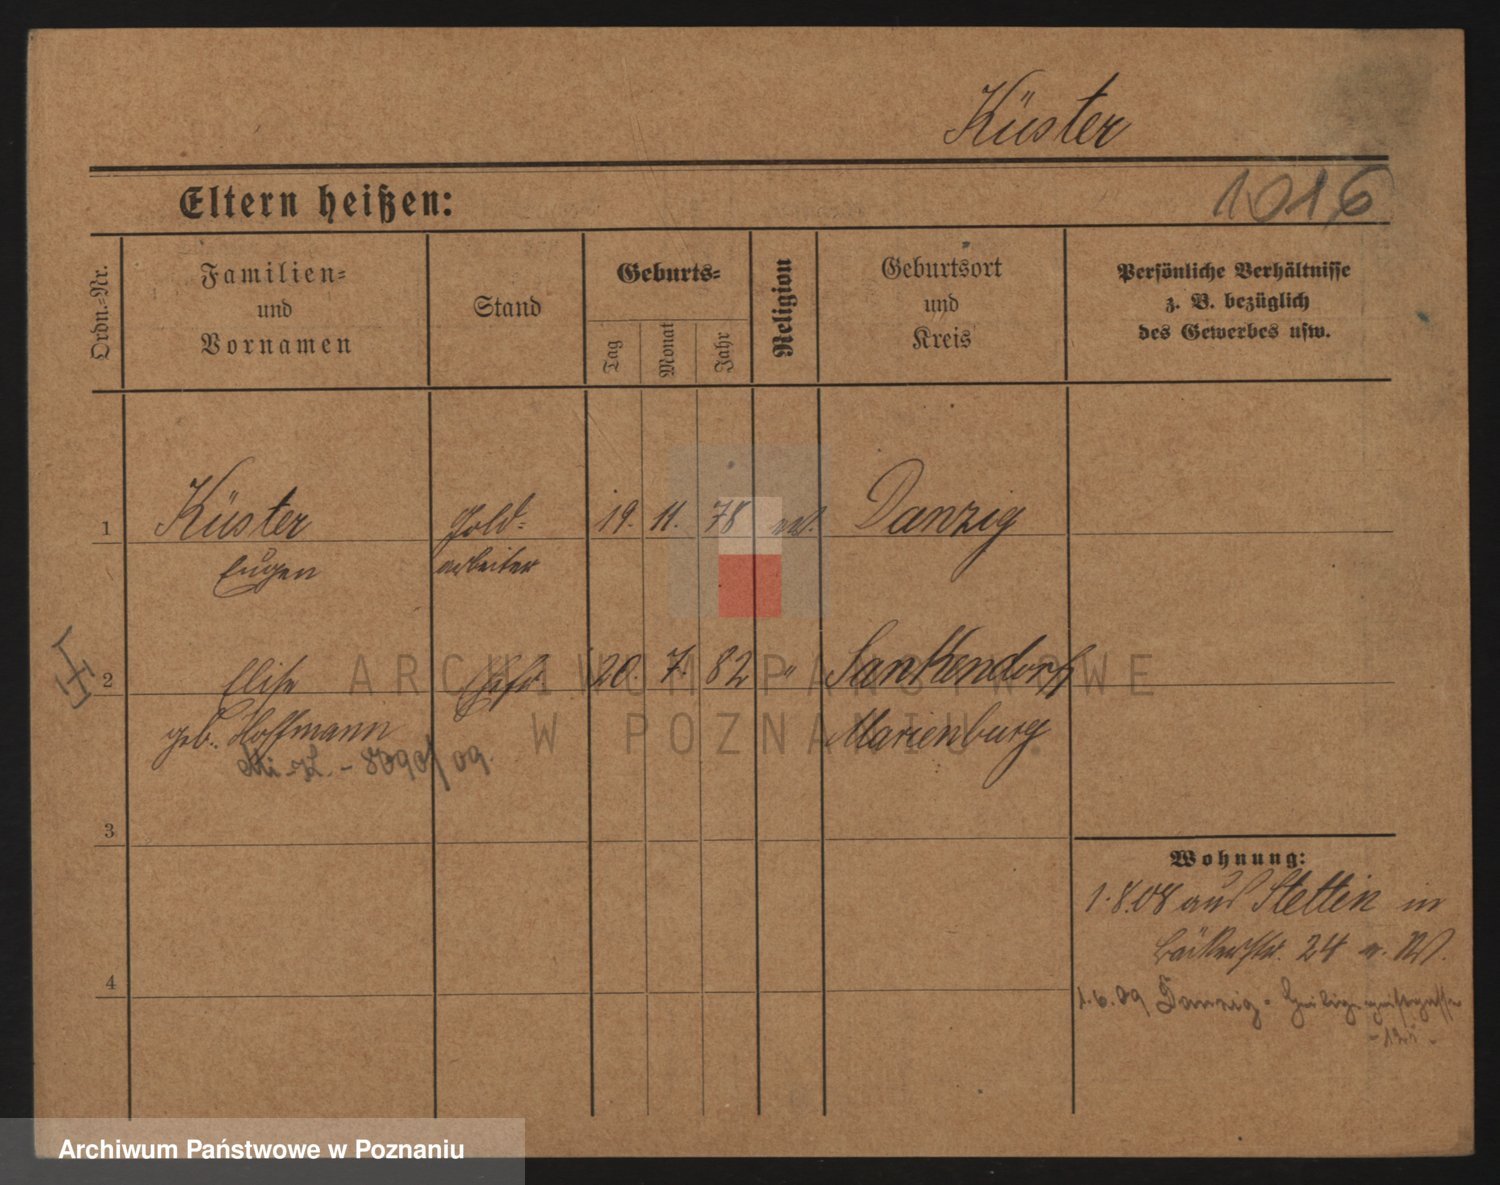 Küster
Eltern heißen:
1016
Ordn.-Nr.
Familien-
und
Vornamen
Stand
Geburts-
Tag
Monat
Jahr
Religion
Geburtsort
und
Kreis
Persönliche Verhältnisse
z. B. bezüglich
des Gewerbes usw.
1 Küster Gold- 19. 11. 78 ev. Danzig
Eugen arbeiter
2 Elise Ehefr. 20. 7. 82 " Sankendorf
geb. Hoffmann Marienburg
8090/09.
3
4
Wohnung:
1.8.08 aus Stettin in
Bäckerstr. 24 b. W.
1.6.09 Danzig - Heiligegeistgasse
ARCHIWUM PAŃSTWOWE
W POZNANIU
Archiwum Państwowe w Poznaniu